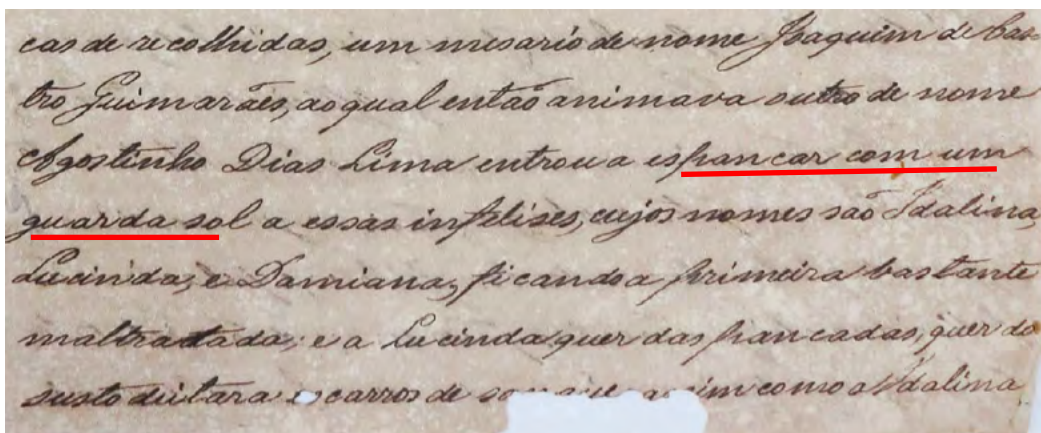 cas de recolhidas, um mesario de nome Joaquim de Cas-
tro Guimarães, ao qual então animava outro de nome
Agostinho Dias Lima entrou a espancar com um
guarda sol a essas infelises, cujos nomes são Idalina,
Lucinda, e Damiana, ficando a primeira bastante
maltratada; e a Lucinda quer das pancadas, quer do
susto deitara escarros de sangue assim como a Idalina